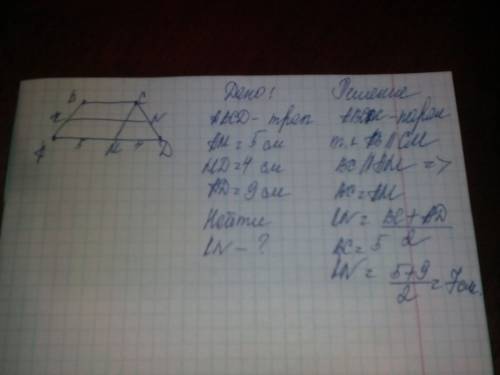 B C
N
A 5 M 4 D
Дано:
ABCD - трап
AM = 5 см
MD = 4 см
AD = 9 см
Найти
LN - ?
Решение
ABCM - парал
т.к AB || CM
BC || AM =>
BC = AM
LN = BC + AD / 2
BC = 5
LN = 5 + 9 / 2 = 7 см.